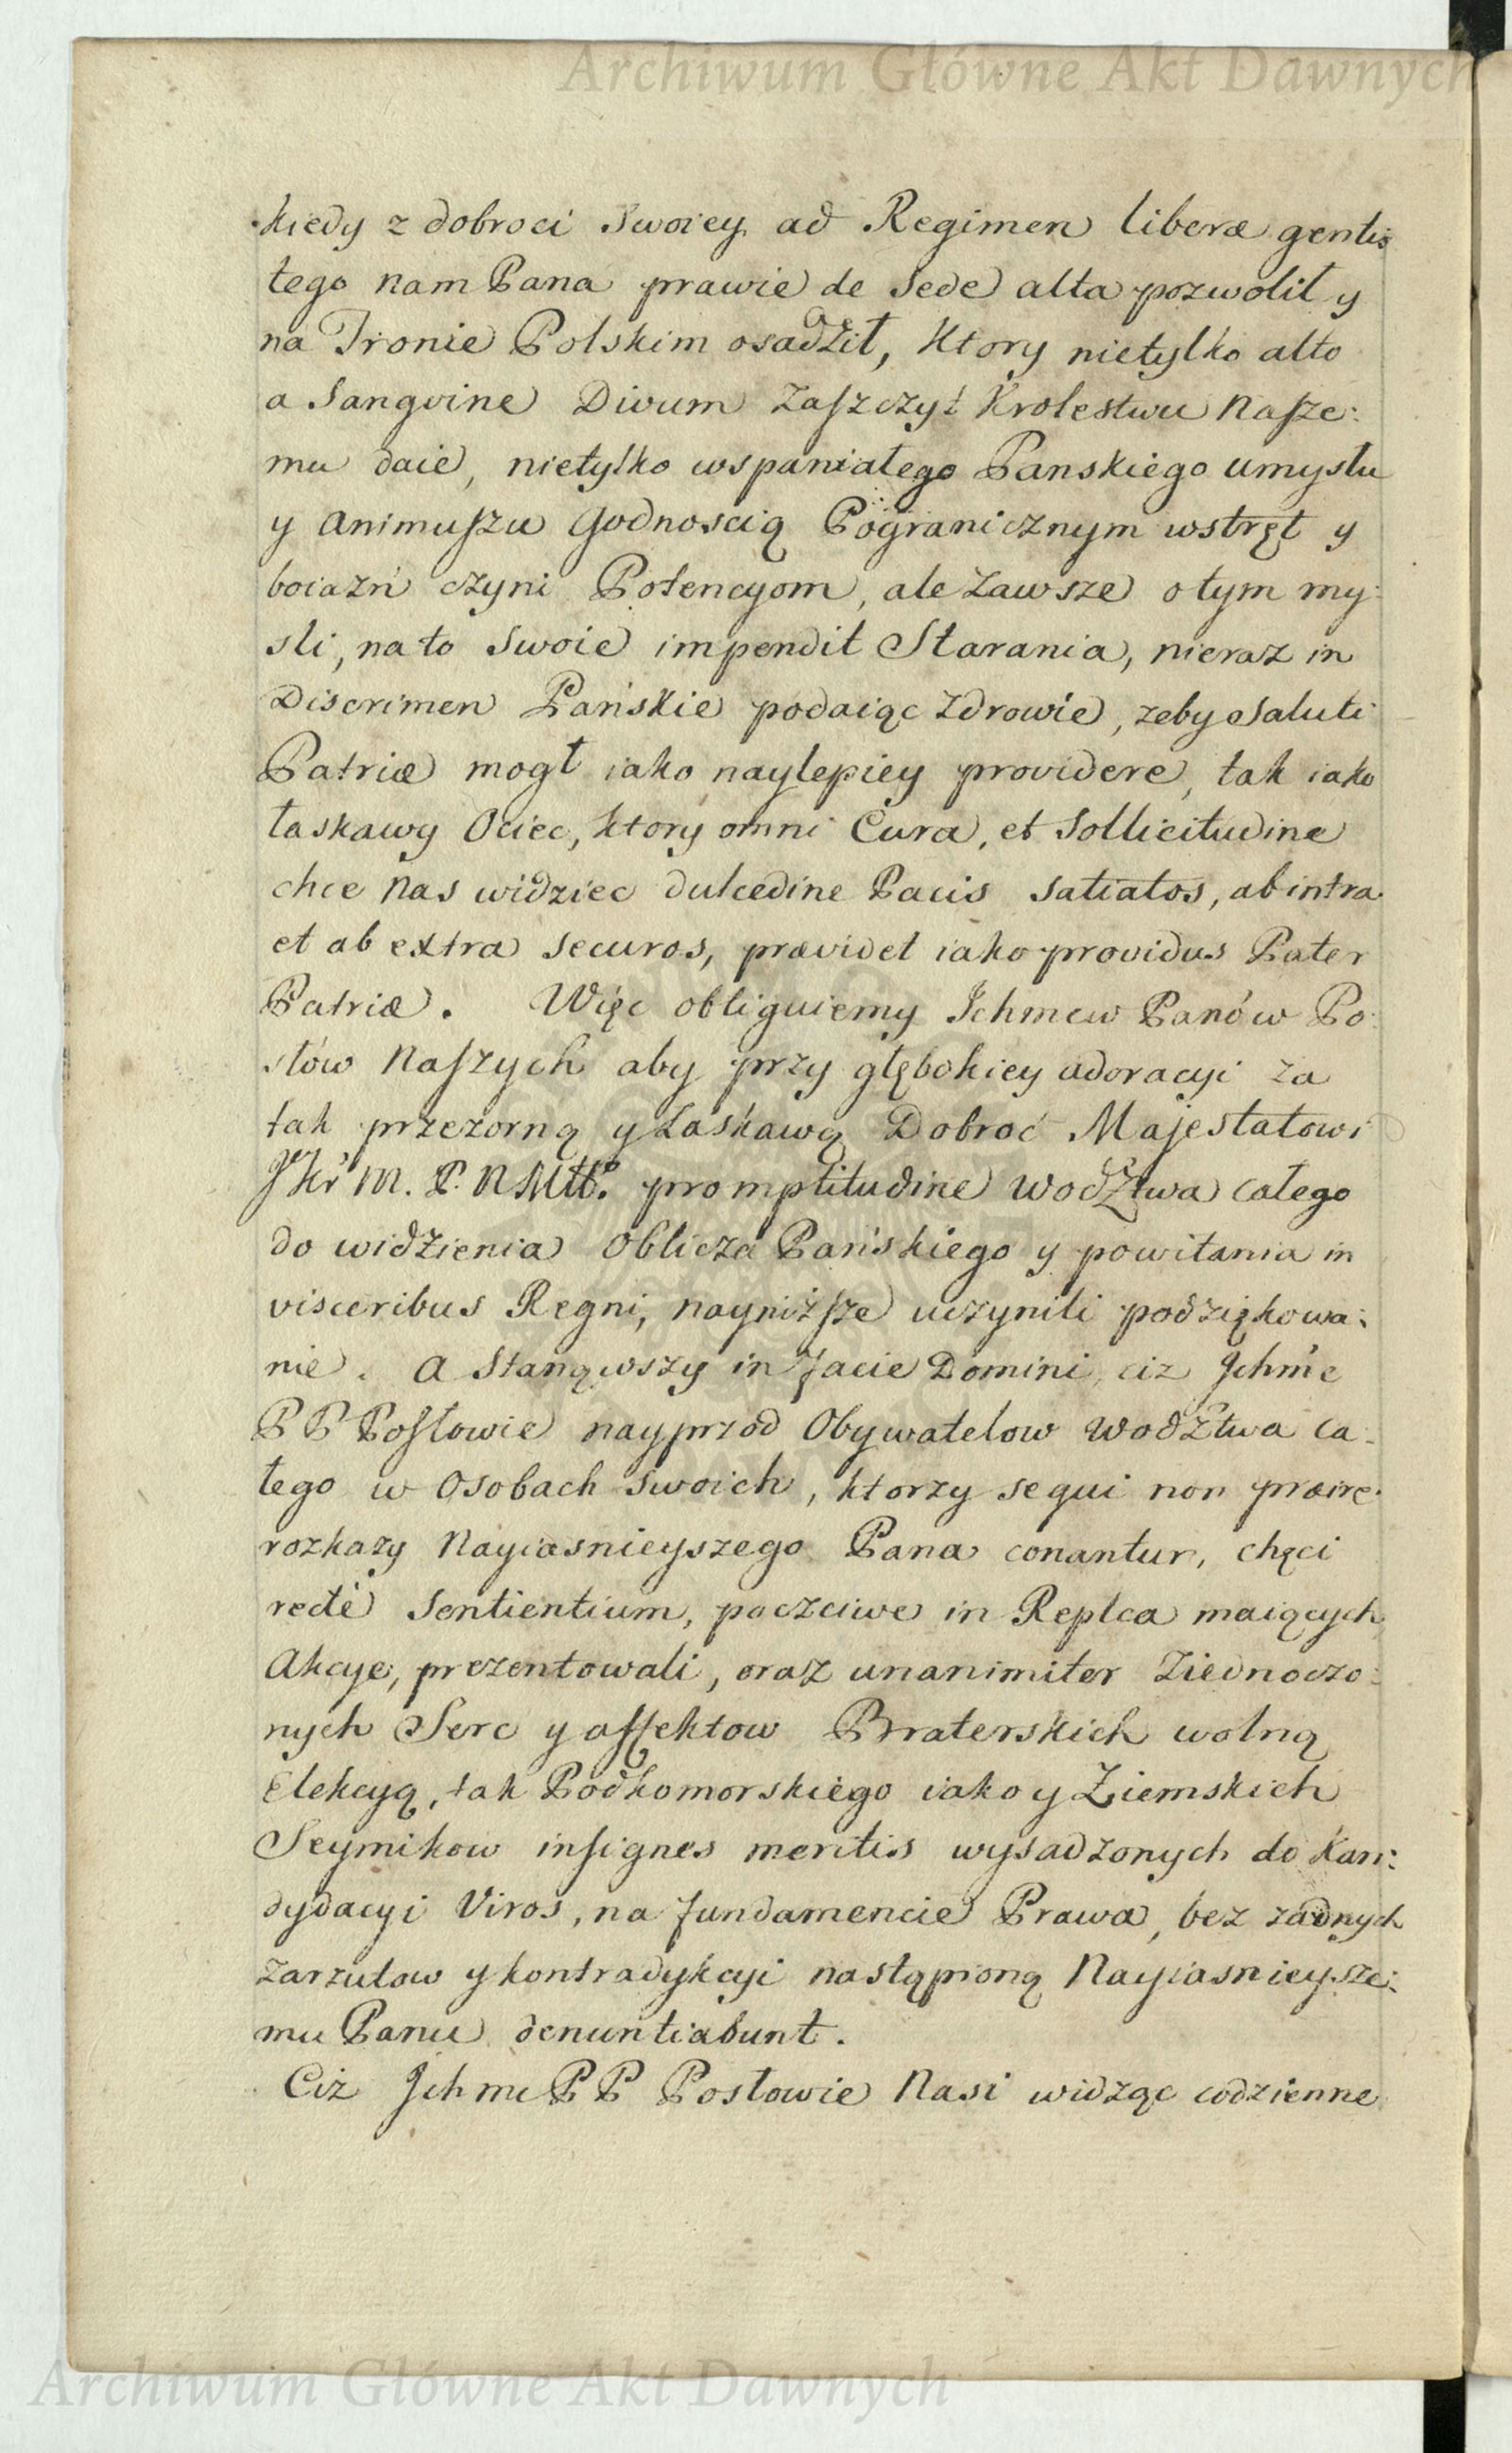 Archiwum Główne Akt Dawnych
kiedy z dobroci Swoiey ad Regimen liberæ gentis
tego nam Pana prawie de Sede alta pozwolił y
na Tronie Polskim osadził, ktory nietylko alto
a Sangvine Divum Zaszczyt Krolestwu Nasze:
mu daie, nietylko wspaniałego Panskiego umysłu
y Animuszu Godnoscią Pogranicznym wstręt y
boiazń czyni Potencyom, ale Zawsze o tym my:
sli, na to Swoie impendit Starania, nieraz in
Discrimen Pańskie podaiąc Zdrowie, zeby Saluti
Patriæ mogł iako naylepiey providere, tak iako
łaskawy Ociec, ktory omni Cura, et Sollicitudine
chce Nas widziec dulcedine Pacis Satiatos, ab intra
et ab extra Securos, prævidet iako providus Pater
Patriæ. Więc obliguiemy Ichmcw Panów Po:
słów Naszych aby przy głębokiey adoracyi za
tak przezorną y Łaskawą Dobroć Majestatowi
JKr M. P. N Młł. promptitudine Wodztwa całego
do widzienia Oblicza Pańskiego y powitania in
visceribus Regni, nayniższe uczynili podziękowa:
nie. A Stanąwszy in facie Domini, ciz Jchmc
P P Posłowie nayprzod Obywatelow Wodztwa ca:
łego w Osobach Swoich, ktorzy sequi non præire
rozkazy Nayiasnieyszego Pana conantur, chęci
rectè Sentientium, poczciwe in Replca maiących
Akcye, prezentowali, oraz unanimiter Ziednoczo:
nych Serc y affektow Braterskich wolną
Elekcyą, tak Podkomorskiego iako y Ziemskich
Seymikow insignes meritis wysadzonych do Kan:
dydacyi Viros, na fundamencie Prawa, bez zadnych
Zarzutow y kontradykcyi nastąpioną Nayiasnieysze:
mu Panu denuntiabunt.
Ciż Jchmc P P Posłowie Nasi widząc codzienne
Archiwum Główne Akt Dawnych